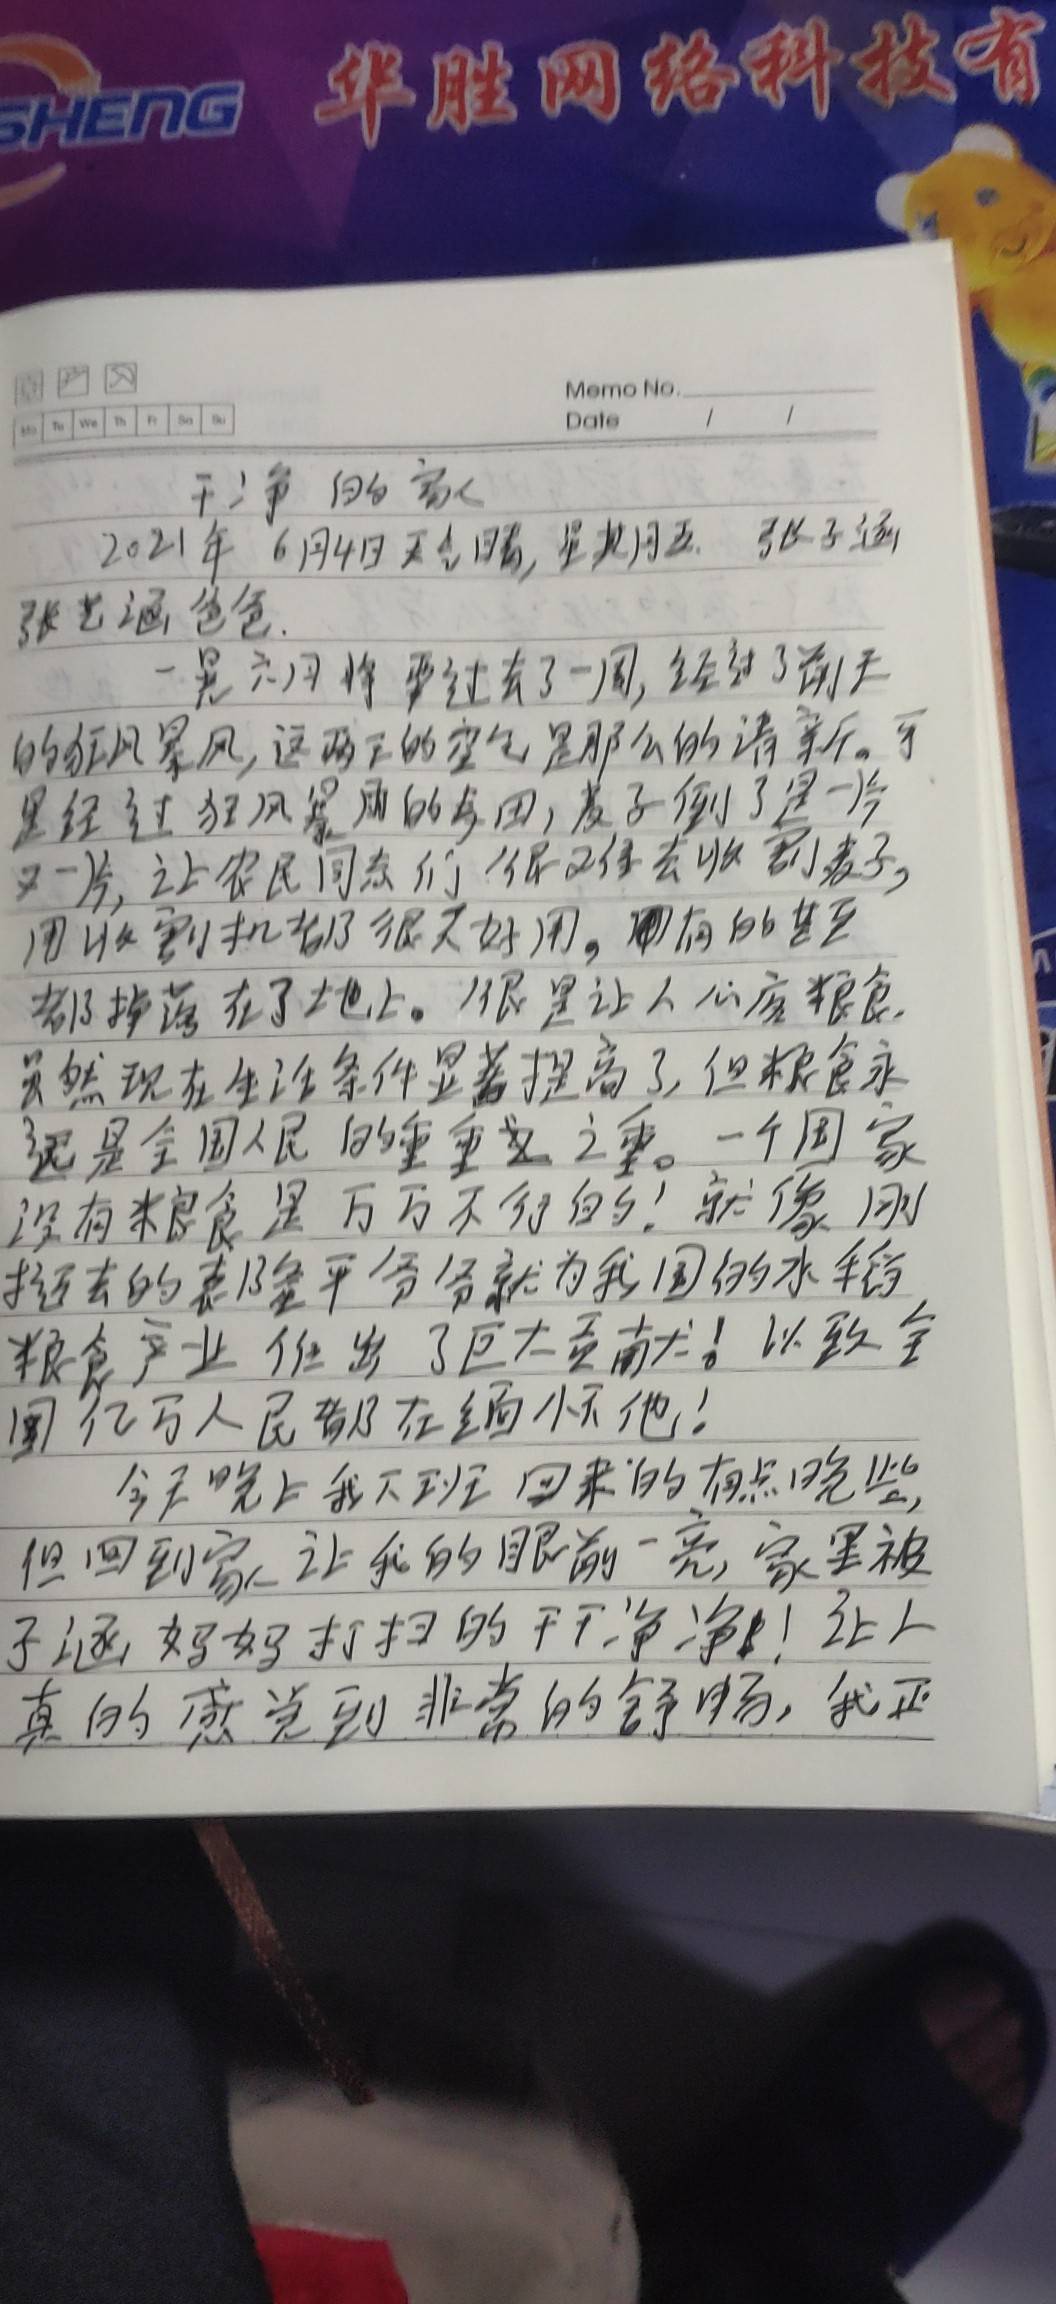 SHENG 华胜网络科技有
Memo No.
Mo Tu We Th Fr Sa Su
Date / /
干净的家
2021年 6月4日天气晴,星期五. 张子涵
张艺涵爸爸.
一晃六月将要过去了一周,经过了前天
的狂风暴风,这两天的空气是那么的清新。可
是经过狂风暴雨的麦田,麦子倒了是一片
又一片,让农民同志们很难去收割麦子,
用收割机都很不好用。有的甚至
都掉落在了地上。很是让人心疼粮食.
虽然现在生活条件显著提高了,但粮食永
远是全国人民的重重之重。一个国家
没有粮食是万万不行的!就像刚
过去的袁隆平爷爷就为我国的水稻
粮食产业作出了巨大贡献!以致全
国亿万人民都在缅怀他!
今天晚上我下班回来的有点晚些,
但回到家让我的眼前一亮,家里被
子涵妈妈打扫的干干净净!让人
真的感觉到非常的舒畅,我还